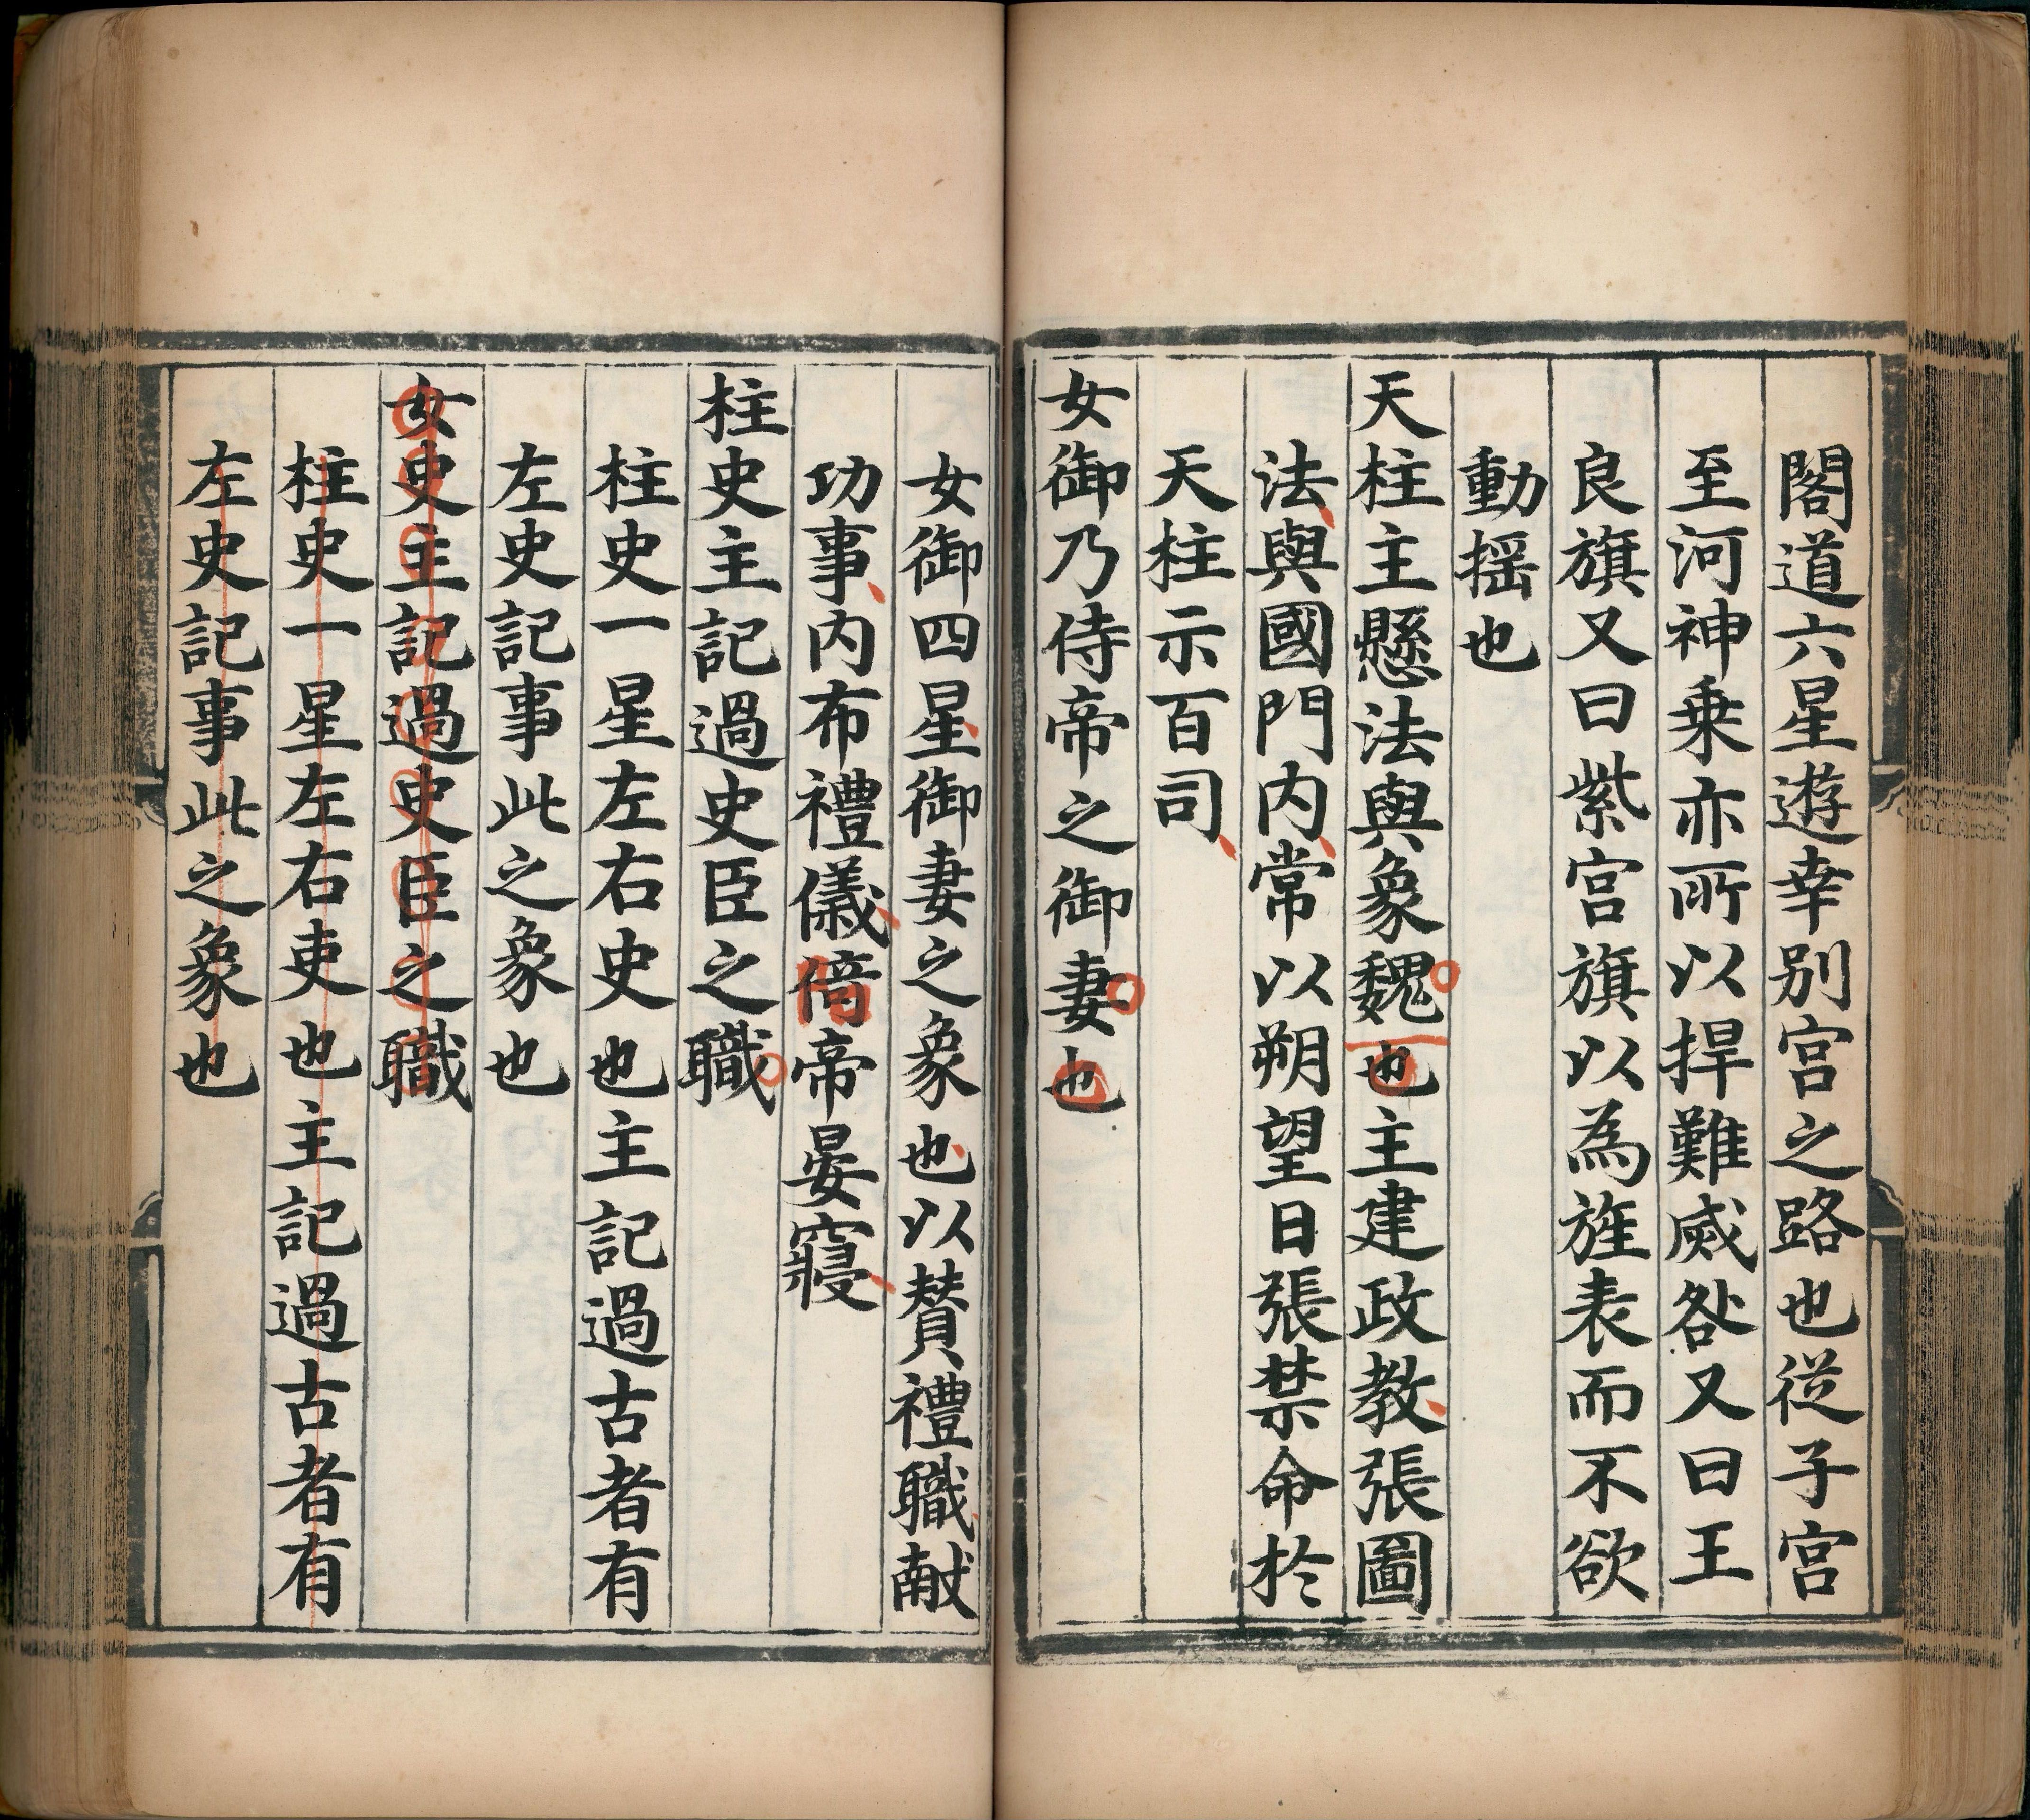 閣道六星遊幸别宫之路也從子宫
至河神乗亦所以捍難威咎又曰王
良旗又曰紫宫旗以為旌表而不欲
動揺也
天柱主懸法與象魏也主建政教張圖
法與國門内常以朔望日張禁命於
天柱示百司
女御乃侍帝之御妻也
女御四星御妻之象也以賛禮職献
功事内布禮儀偣帝晏寢
柱史主記過史臣之職
柱史一星左右史也主記過古者有
左史記事此之象也
女史主記過史臣之職
柱史一星左右吏也主記過古者有
左史記事此之象也